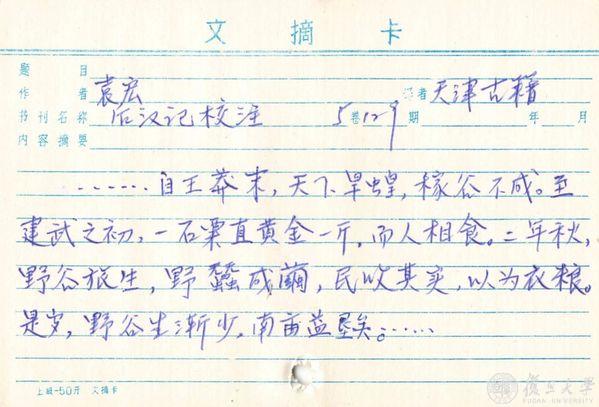 文摘卡
题目
作者 袁宏 译者 天津古籍
书刊名称 后汉记校注 5卷129期 年 月
内容摘要
……自王莽末，天下旱蝗，稼谷不成。至
建武之初，一石粟直黄金一斤，而人相食。二年秋，
野谷旅生，野蚕成茧，民收其实，以为衣粮。
是岁，野谷生渐少，南亩益垦矣。……
上缄-50开 文摘卡
復旦大學
FUDAN UNIVERSITY